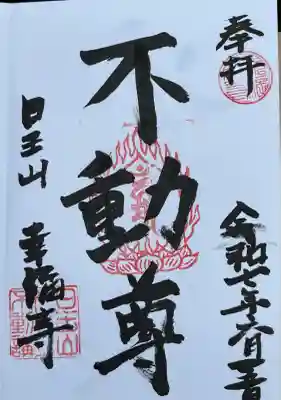 奉拝
令和七年六月吉日
不動尊
日王山
幸福寺